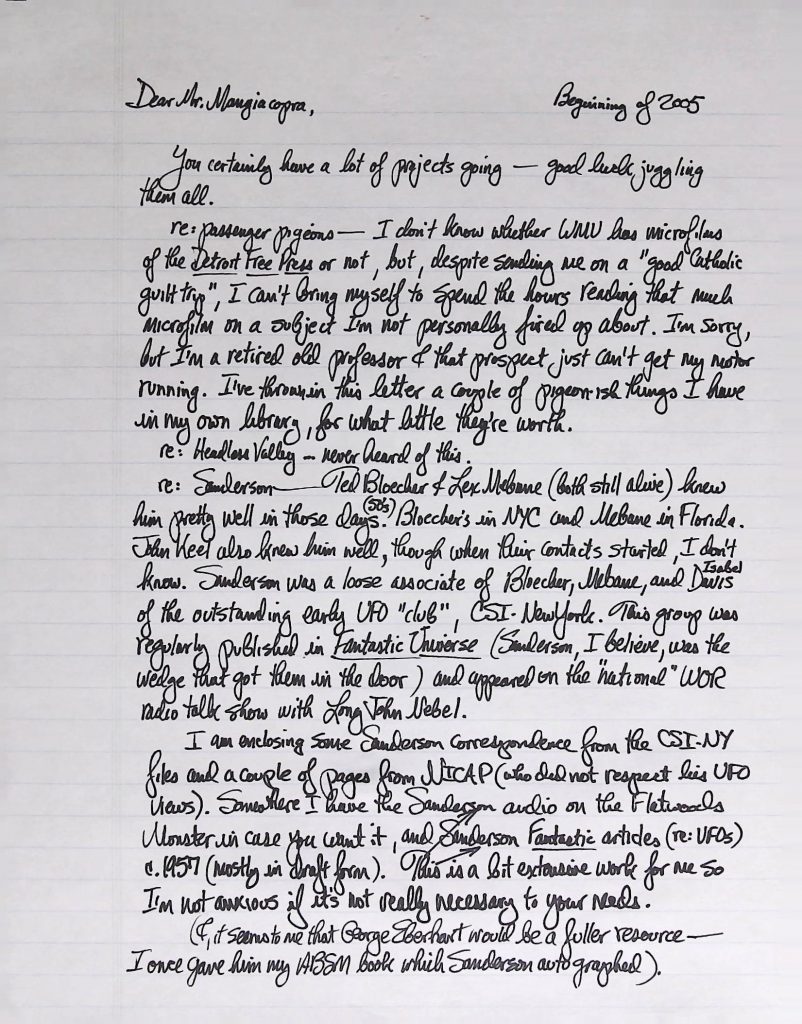 Dear Mr. Mangiacopra, Beginning of 2005
You certainly have a lot of projects going — good luck juggling
them all.
re: passenger pigeons — I don't know whether WMU has microfilms
of the Detroit Free Press or not, but, despite sending me on a "good Catholic
guilt trip", I can't bring myself to spend the hours reading that much
microfilm on a subject I'm not personally fired up about. I'm sorry,
but I'm a retired old professor & that prospect just can't get my motor
running. I've thrown in this letter a couple of pigeon-ish things I have
in my own library, for what little they're worth.
re: Headless Valley — never heard of this.
re: Sanderson — Ted Bloecher & Lex Mebane (both still alive) knew
him pretty well in those days (50's). Bloecher's in NYC and Mebane in Florida.
John Keel also knew him well, though when their contacts started, I don't
know. Sanderson was a loose associate of Bloecher, Mebane, and Isabel Davis
of the outstanding early UFO "club", CSI-New York. This group was
regularly published in Fantastic Universe (Sanderson, I believe, was the
wedge that got them in the door) and appeared on the "national" WOR
radio talk show with Long John Nebel.
I am enclosing some Sanderson correspondence from the CSI-NY
files and a couple of pages from NICAP (who did not respect his UFO
views). Somewhere I have the Sanderson audio on the Flatwoods
Monster in case you want it, and Sanderson Fantastic articles (re: UFOs)
c. 1957 (mostly in draft form). This is a bit extensive work for me so
I'm not anxious if it's not really necessary to your needs.
(&, it seems to me that George Eberhart would be a fuller resource —
I once gave him my ABSM book which Sanderson autographed).